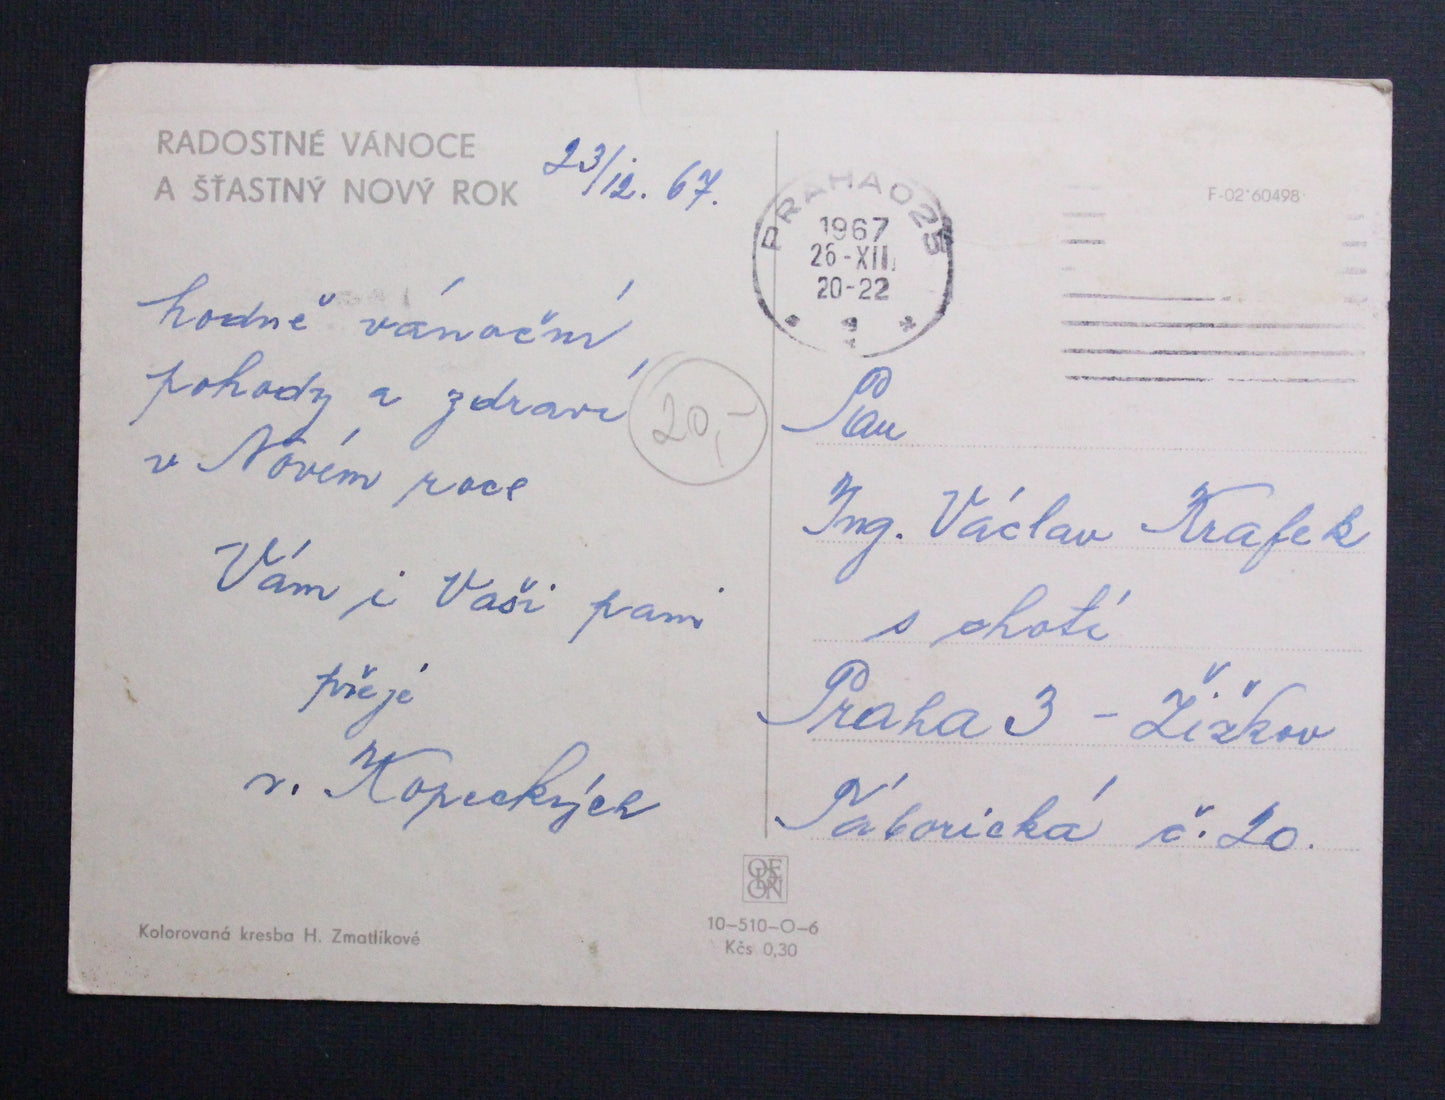 RADOSTNÉ VÁNOCE
A ŠŤASTNÝ NOVÝ ROK
23/12. 67.
hodně vánoční
pohody a zdraví
v Novém roce
Vám i Vaši pani
přejé
r. Kopeckých
20,-
Kolorovaná kresba H. Zmatlíkové
PRAHA 025
1967
26-XII.
20-22
F-02*60498
Pan
Ing. Václav Krafek
s chotí
Praha 3 - Žižkov
Táborická č. 20.
ODEON
10–510–O–6
Kčs 0,30